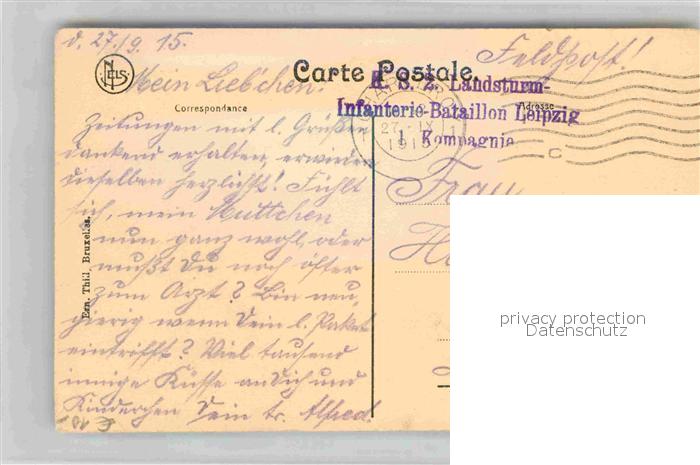 d. 27./9. 15.
Feldpost!
NELS
Carte Postale
Mein Liebchen.
K. S. 2. Landsturm-
Infanterie-Bataillon Leipzig
1. Kompagnie
Correspondance
Adresse
Zeitungen mit l. Grüßen
dankend erhalten, erwiedere
dieselben herzlichst! Fühlt
sich, mein Muttchen
nun ganz wohl, oder
mußt Du noch öfter
zum Arzt? Bin neu,
gierig wenn Dein l. Paket
eintrifft? Viel tausend
innige Küsse an Dich und
Kinderchen Dein tr. Alfred.
Frau
Ern. Thill Bruxelles.
privacy protection
Datenschutz